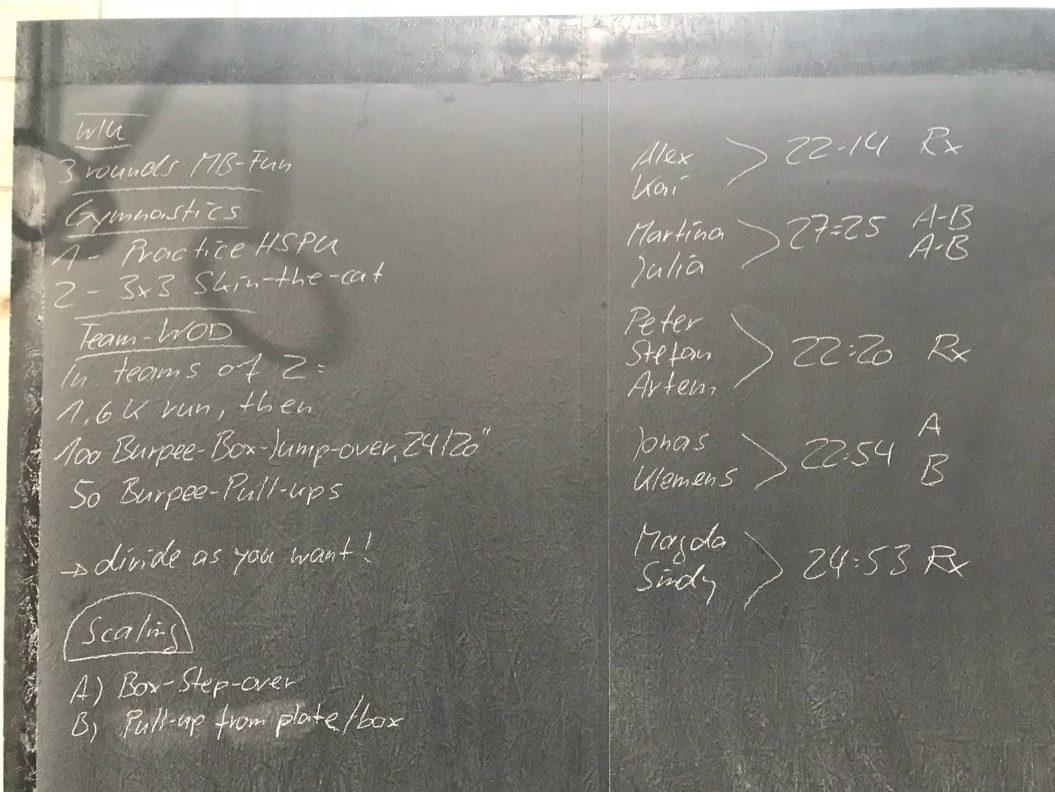 WU
3 rounds MB-Fun
Gymnastics
1 - Practice HSPU
2 - 3x3 Skin-the-cat
Team-WOD
In teams of 2:
1,6 K run, then
100 Burpee-Box-Jump-over, 24/20"
50 Burpee-Pull-ups
→ divide as you want!
Scaling
A) Box-Step-over
B) Pull-up from plate/box
Alex
Kai
22:14 Rx
Martina
Julia
27:25 A-B
A-B
Peter
Stefan
Artem
22:20 Rx
Jonas
Klemens
22:54 A
B
Magda
Sindy
24:53 Rx